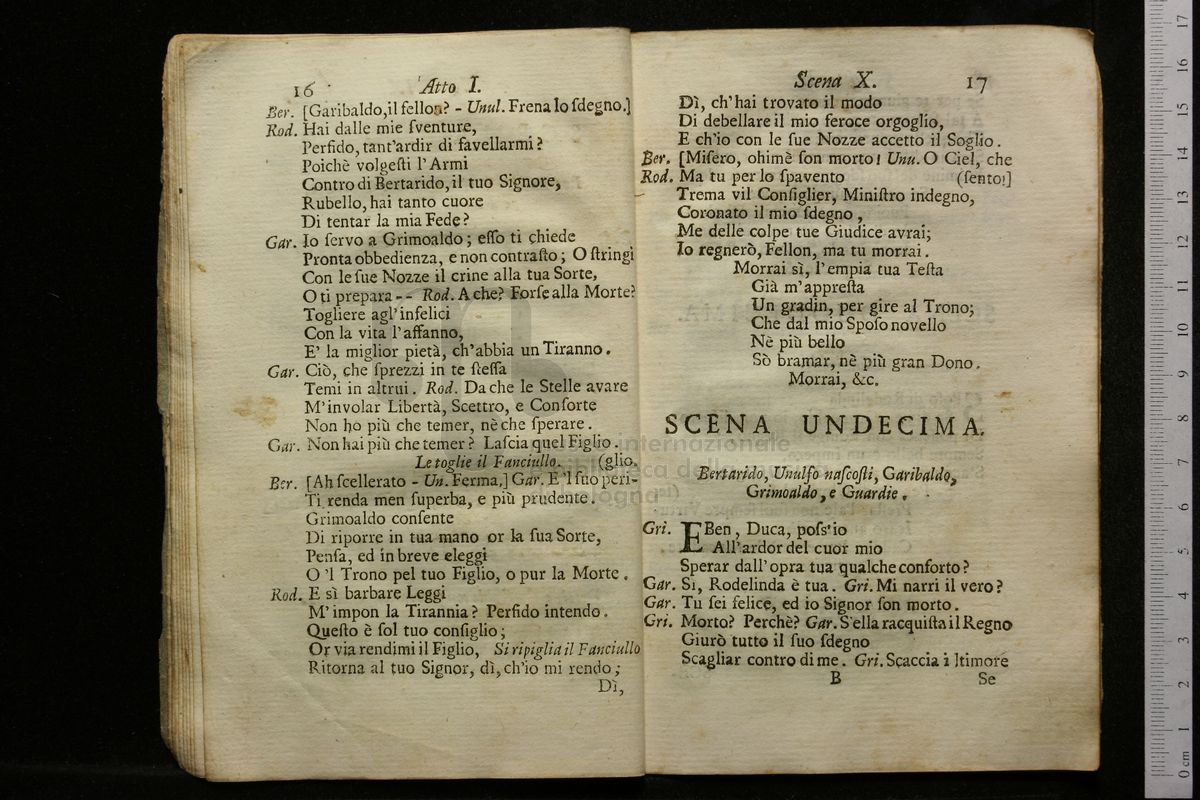 16 Atto I.
Ber. [Garibaldo,il fellon? - Unul. Frena lo ſdegno.]
Rod. Hai dalle mie ſventure,
Perfido, tant'ardir di favellarmi?
Poichè volgeſti l'Armi
Contro di Bertarido, il tuo Signore,
Rubello, hai tanto cuore
Di tentar la mia Fede?
Gar. Io ſervo a Grimoaldo; eſſo ti chiede
Pronta obbedienza, e non contraſto; O ſtringi
Con le ſue Nozze il crine alla tua Sorte,
O ti prepara -- Rod. A che? Forſe alla Morte?
Togliere agl'infelici
Con la vita l'affanno,
E' la miglior pietà, ch'abbia un Tiranno.
Gar. Ciò, che ſprezzi in te ſteſſa
Temi in altrui. Rod. Da che le Stelle avare
M'involar Libertà, Scettro, e Conſorte
Non ho più che temer, nè che ſperare.
Gar. Non hai più che temer? Laſcia quel Figlio.
Le toglie il Fanciullo. (glio.
Ber. [Ah ſcellerato - Un. Ferma,] Gar. E 'l ſuo peri-
Ti renda men ſuperba, e più prudente.
Grimoaldo conſente
Di riporre in tua mano or la ſua Sorte,
Penſa, ed in breve eleggi
O 'l Trono pel tuo Figlio, o pur la Morte.
Rod. E sì barbare Leggi
M'impon la Tirannia? Perfido intendo.
Queſto è ſol tuo conſiglio;
Or via rendimi il Figlio, Si ripiglia il Fanciullo
Ritorna al tuo Signor, dì, ch'io mi rendo;
Dì,
Scena X. 17
Dì, ch'hai trovato il modo
Di debellare il mio feroce orgoglio,
E ch'io con le ſue Nozze accetto il Soglio.
Ber. [Miſero, ohimè ſon morto! Unu. O Ciel, che
Rod. Ma tu per lo ſpavento (ſento!]
Trema vil Conſiglier, Miniſtro indegno,
Coronato il mio ſdegno,
Me delle colpe tue Giudice avrai;
Io regnerò, Fellon, ma tu morrai.
Morrai sì, l'empia tua Teſta
Già m'appreſta
Un gradin, per gire al Trono;
Che dal mio Spoſo novello
Nè più bello
Sò bramar, nè più gran Dono.
Morrai, &c.
SCENA UNDECIMA.
Bertarido, Unulfo naſcoſti, Garibaldo,
Grimoaldo, e Guardie.
Gri. EBen, Duca, poſs'io
All'ardor del cuor mio
Sperar dall'opra tua qualche conforto?
Gar. Si, Rodelinda è tua. Gri. Mi narri il vero?
Gar. Tu ſei felice, ed io Signor ſon morto.
Gri. Morto? Perchè? Gar. S'ella racquiſta il Regno
Giurò tutto il ſuo ſdegno
Scagliar contro di me. Gri. Scaccia i ltimore
B Se
internazionale
biblioteca della
bologna
0 cm 1 2 3 4 5 6 7 8 9 10 11 12 13 14 15 16 17